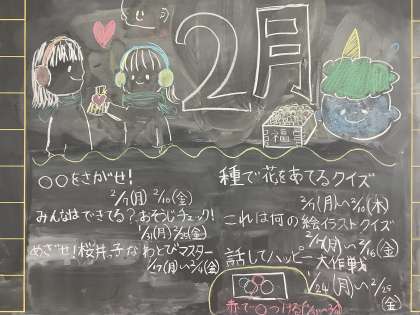 2月
福
○○をさがせ!
2/7(月) 2/10(金)
みんなはできてる?おそうじチェック!
1/31(月) 2/25(金)
めざせ!桜井っ子なわとびマスター
1/17(月)〜2/4(金)
種で花をあてるクイズ
2/7(月)〜2/10(木)
これは何の絵イラストクイズ
2/7(月)〜2/16(金)
話してハッピー大作戦
1/24(月)〜2/25(金)
赤で○つける